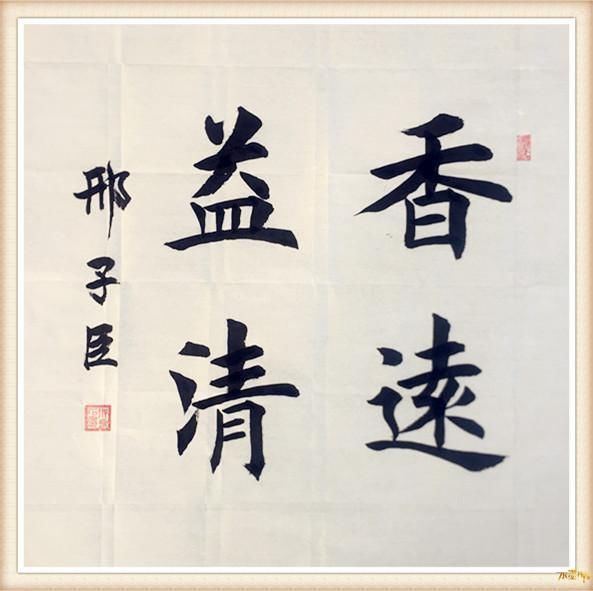 香遠
益清
邢子臣